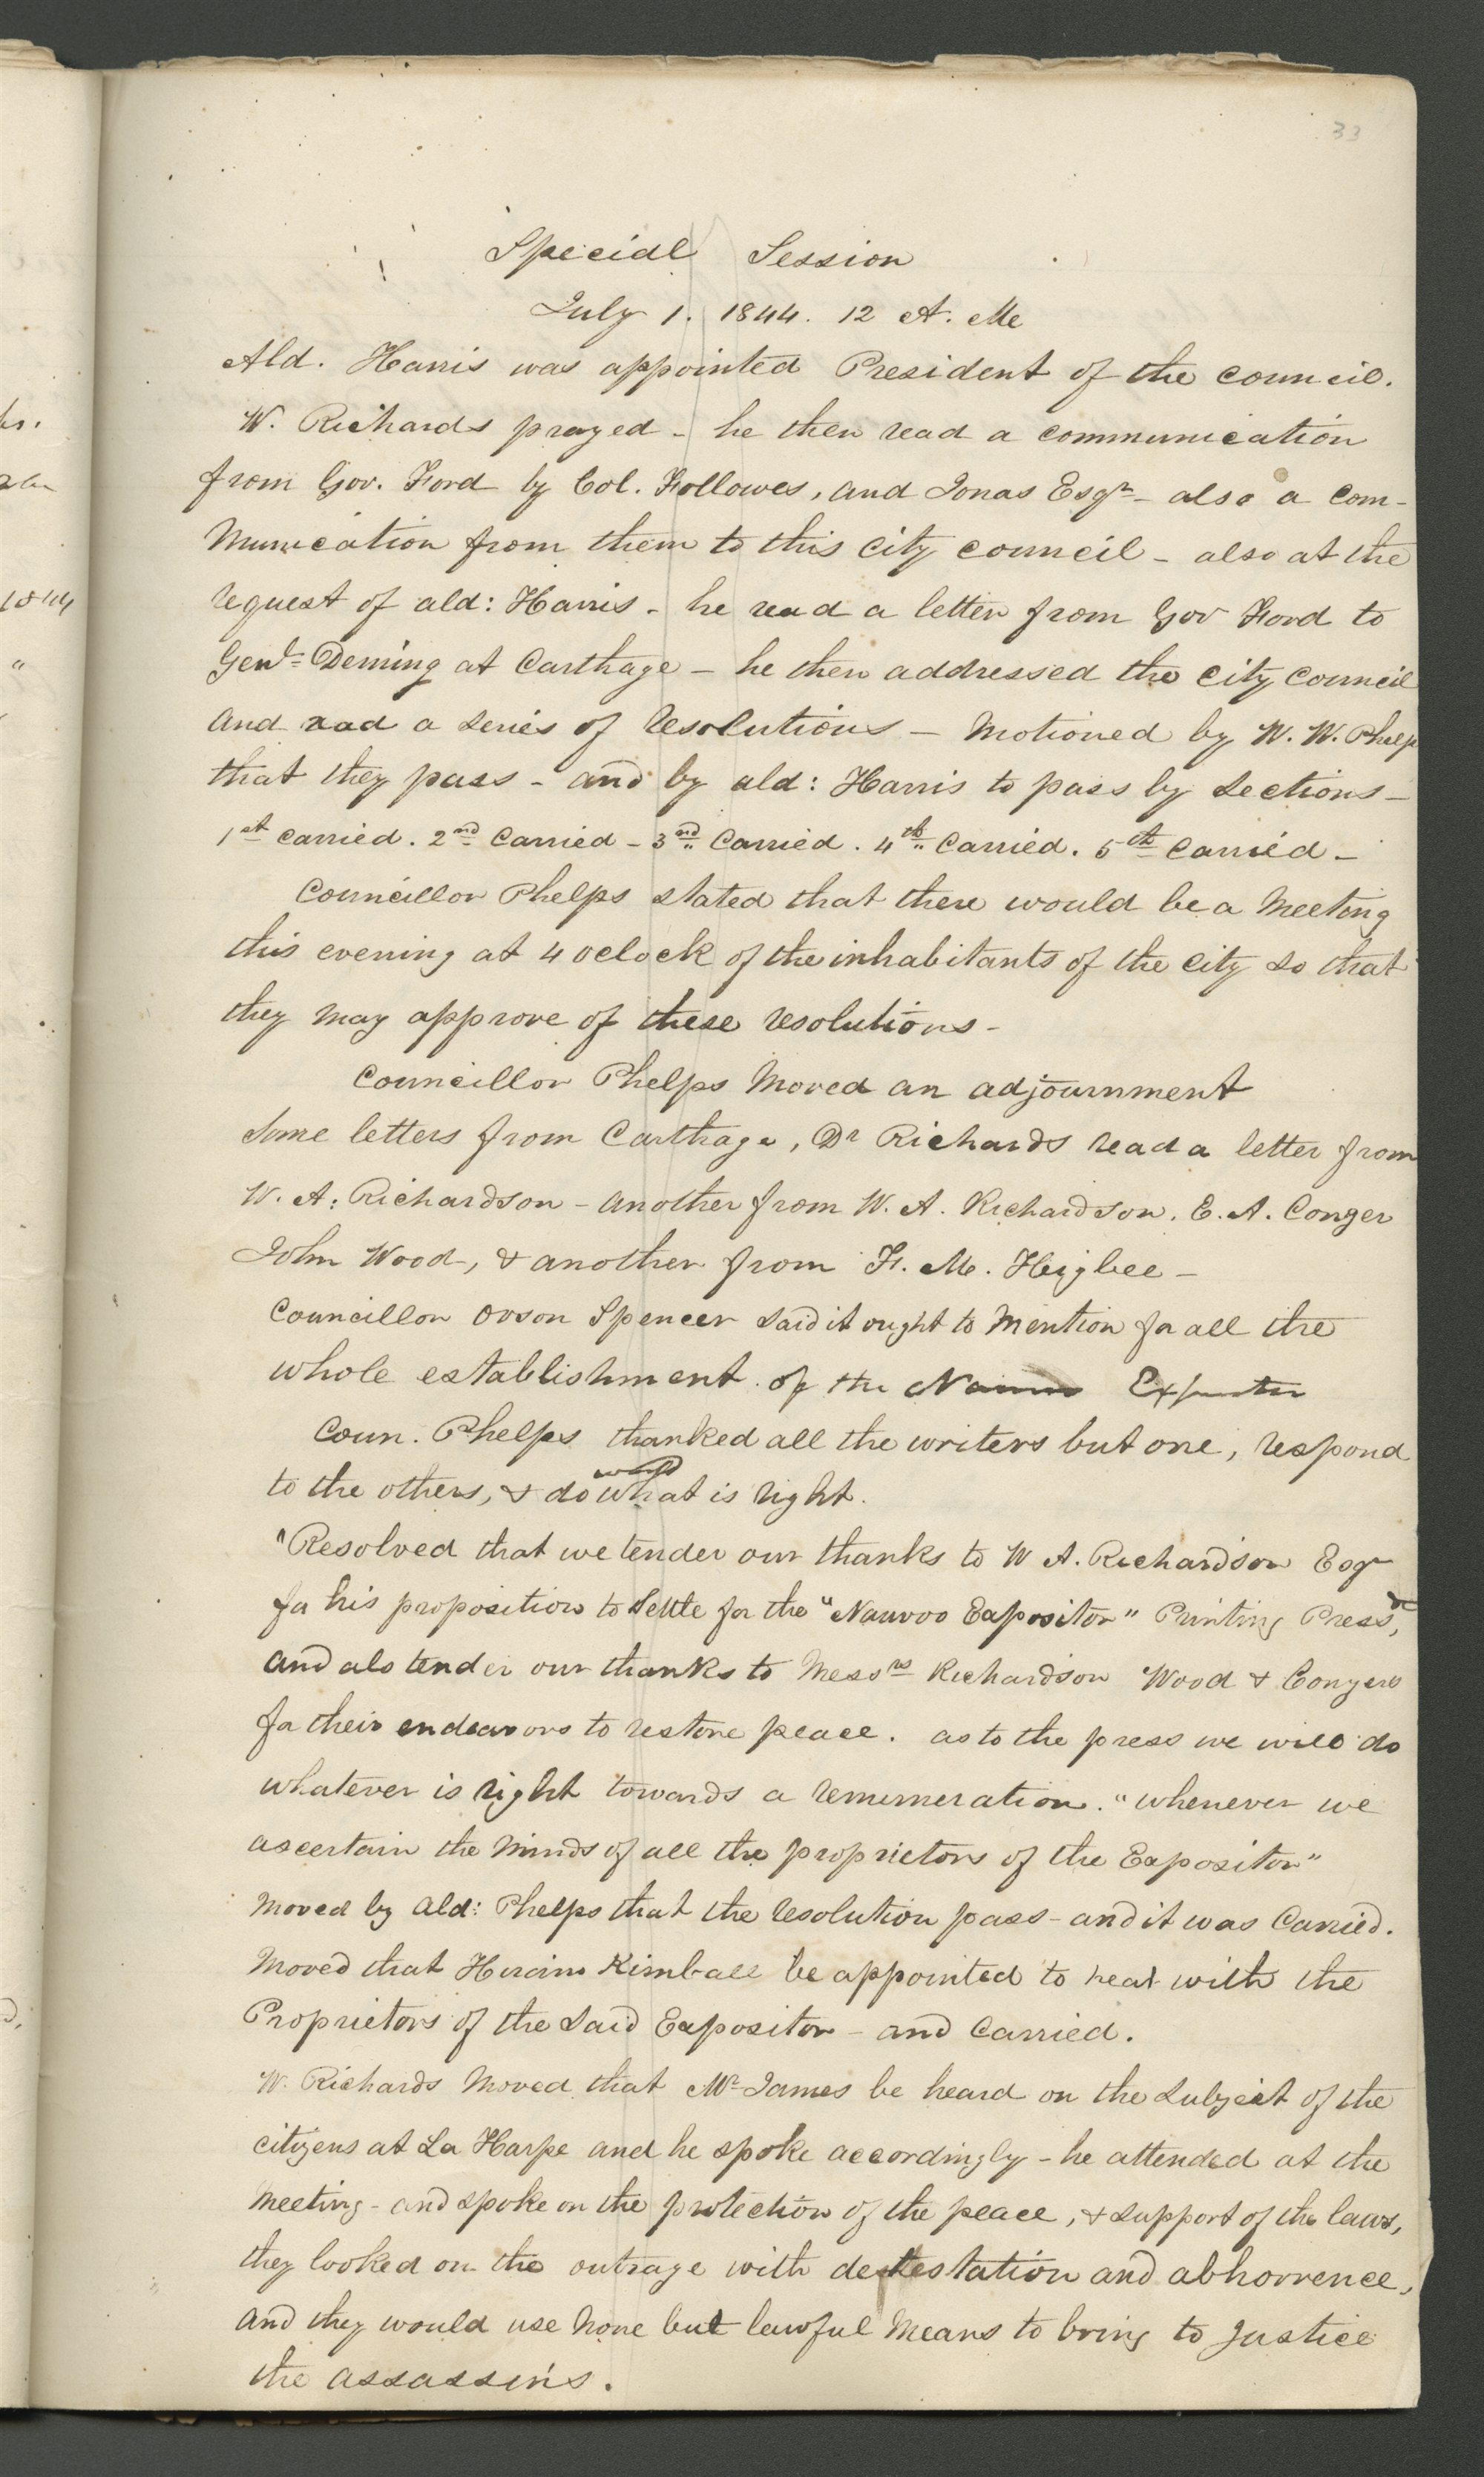 33
Special Session
July 1. 1844. 12 A. M
Ald. Harris was appointed President of the council.
W. Richards prayed - he then read a communication
from Gov. Ford by Col. Fellowes, and Jonas Esqr - also a com-
munication from them to this city council - also at the
request of ald: Harris - he read a letter from Gov Ford to
Genl. Deming at Carthage - he then addressed the city council
and read a series of resolutions - motioned by W. W. Phelp
that they pass - and by ald: Harris to pass by sections -
1st carried. 2nd carried - 3rd carried. 4th carried. 5th carried -
Councillor Phelps stated that there would be a meeting
this evening at 4 oclock of the inhabitants of the city so that
they may approve of these resolutions -
Councillor Phelps moved an adjournment
Some letters from Carthage, Dr Richards read a letter from
W. A. Richardson - another from W. A. Richardson. E. A. Conger
John Wood -, & another from F. M. Heigbee -
Councillor Orson Spencer said it ought to mention for all the
whole establishment of the
Coun. Phelps thanked all the writers but one, respond
to the others, & do what is right.
"Resolved that we tender our thanks to W A. Richardson Esqr
for his proposition to settle for the "Nauvoo Expositor" Printing Press,
and als tender our thanks to Messrs Richardson Wood & Conyers
for their endeavors to restore peace. as to the press we will do
whatever is right towards a remumeration. "whenever we
ascertain the minds of all the proprietors of the Expositor"
moved by Ald: Phelps that the resolution pass - and it was carried.
Moved that Hiram Kimball be appointed to treat with the
Proprietors of the said Expositor - and carried.
W. Richards moved that Mr James be heard on the subject of the
citizens at La Harpe and he spoke accordingly - he attended at the
meeting - and spoke on the protection of the peace, & support of the laws,
they looked on the outrage with detestation and abhorrence,
and they would use none but lawful means to bring to justice
the assassins.